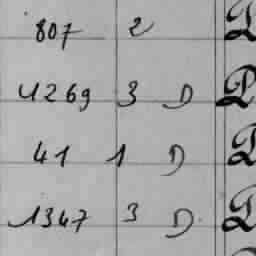 807 2
4269 3 D
41 1 D
1347 3 D.